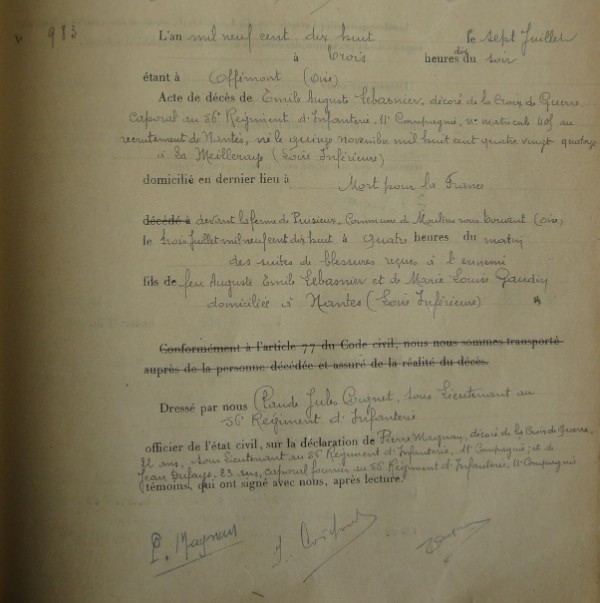 n° 983
L'an mil neuf cent dix huit le sept Juillet
à trois heures dix du soir
étant à Offémont (Oise)
Acte de décès de Emile Auguste Lebasnier, décoré de la Croix de Guerre
caporal au 56e Régiment d'Infanterie, 11e Compagnie, n° matricule 405 au
recrutement de Nantes, né le quinze novembre mil huit cent quatre vingt quatorze
à La Meilleraye (Loire Inférieure)
domicilié en dernier lieu à Mort pour la France
décédé à devant la ferme de Puisieux, Commune de Moulins sous Touvent (Oise)
le trois Juillet mil neuf cent dix huit à quatre heures du matin
des suites de blessures reçues à l'ennemi
fils de feu Auguste Emile Lebasnier et de Marie Louise Gaudin
domiciliée à Nantes (Loire Inférieure)
Conformément à l'article 77 du Code civil, nous nous sommes transporté
auprès de la personne décédée et assuré de la réalité du décès.
Dressé par nous Claude Jules Cognet, sous Lieutenant au
56e Régiment d'Infanterie
officier de l'état civil, sur la déclaration de Pierre Magnan, décoré de la Croix de Guerre,
22 ans, sous Lieutenant au 56e Régiment d'Infanterie, 11e Compagnie; et de
Jean Dufaye, 23 ans, caporal fourrier au 56e Régiment d'Infanterie, 11e Compagnie
témoins, qui ont signé avec nous, après lecture.
P. Magnan